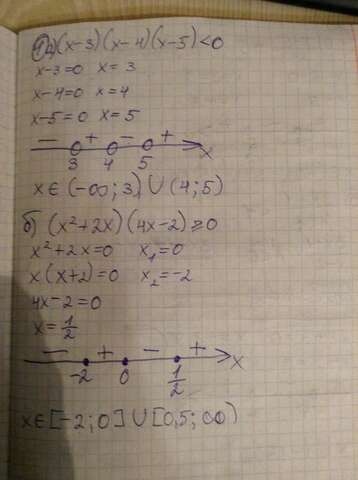 1 а) (x-3)(x-4)(x-5)<0
x-3=0 x=3
x-4=0 x=4
x-5=0 x=5
- + - +
3 4 5 x
x∈(-∞;3)∪(4;5)
б) (x²+2x)(4x-2)≥0
x²+2x=0 x₁=0
x(x+2)=0 x₂=-2
4x-2=0
x=1/2
- + - +
-2 0 1/2 x
x∈[-2;0]∪[0,5;∞)